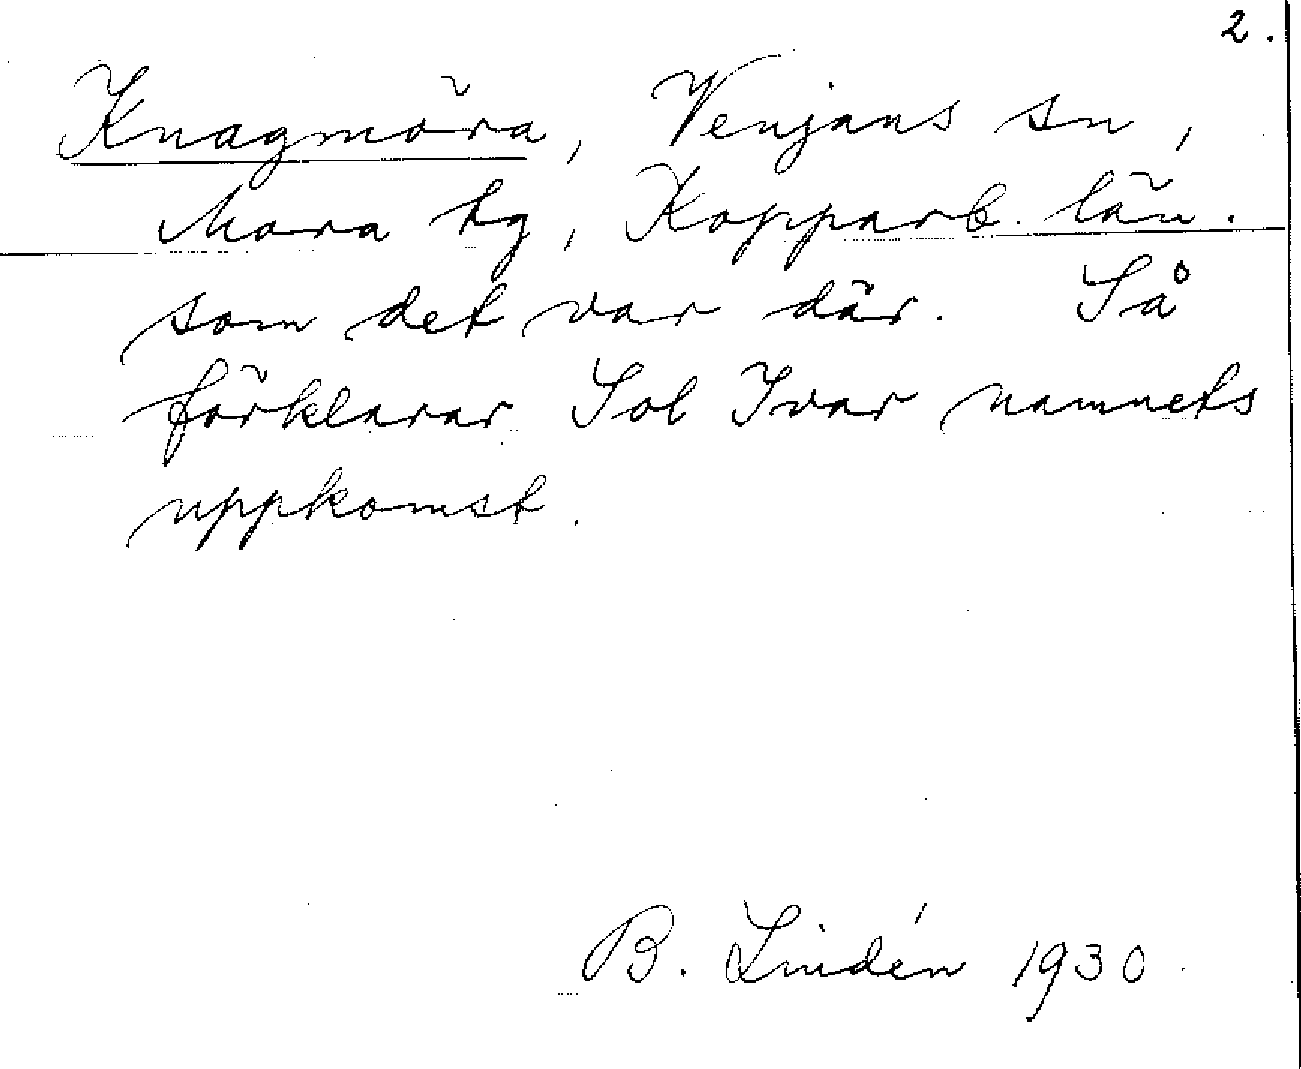 2.
Knagmöra, Venjans sn,
Mora tg, Kopparb. län.
som det var där. Så
förklarar Sol Ivar namnets
uppkomst.
B. Lindén 1930